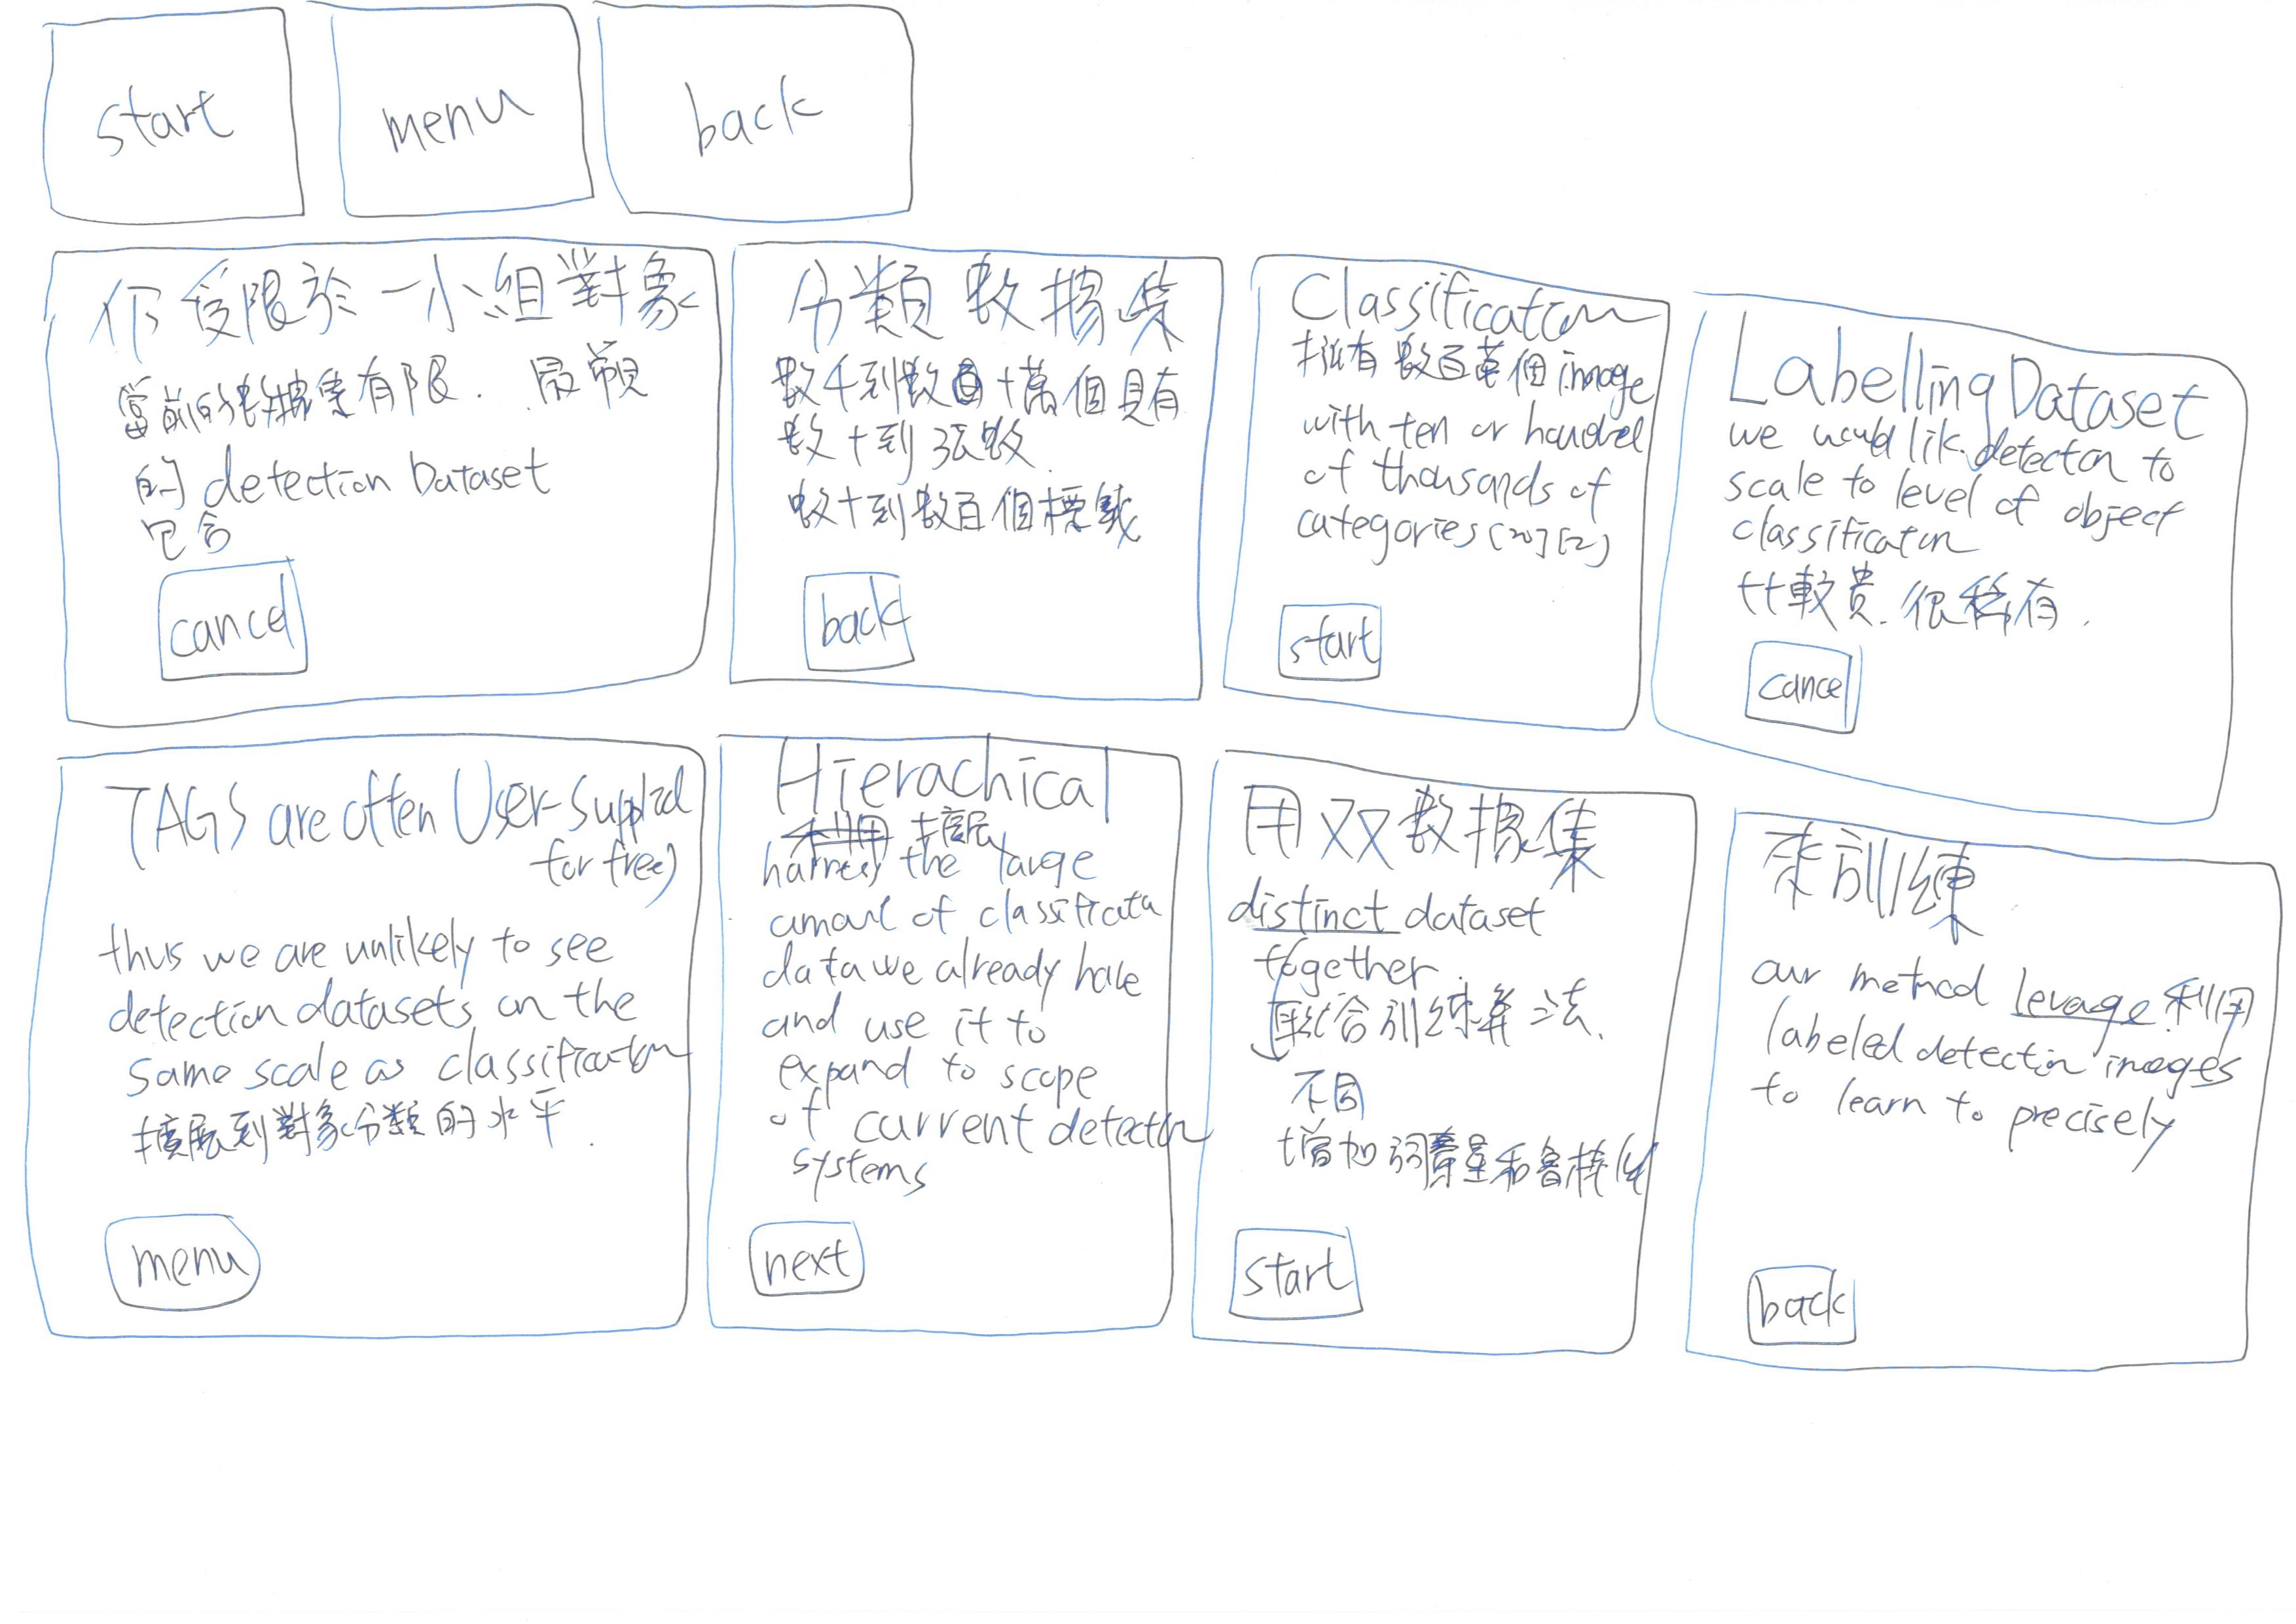 start
menu
back
仍受限於一小組對象
當前的數據集有限.最常見
的 detection Dataset
包含
cancel
分類數據集
數千到數百十萬個具有
數十到張數
數十到數百個標籤
back
Classification
擁有數百萬個 image
with ten or
of thousands of
categories [20] [2]
start
Labelling Dataset
we would lik detection to
scale to level of object
classification
比較貴.很稀有.
cance
TAGS are often User-Supplied
for free)
thus we are unlikely to see
detection datasets on the
same scale as classification
擴展到對象分類的水平.
menu
Hierachical
利用 擴展
harness the large
amount of classificata
data we already have
and use it to
expand to scope
of current detection
systems
next
用双數據集
distinct dataset
together.
聯合訓練算法.
不同
增加詞彙量和魯棒性
start
來訓練
our method levage 利用
labeled detection images
to learn to precisely
back